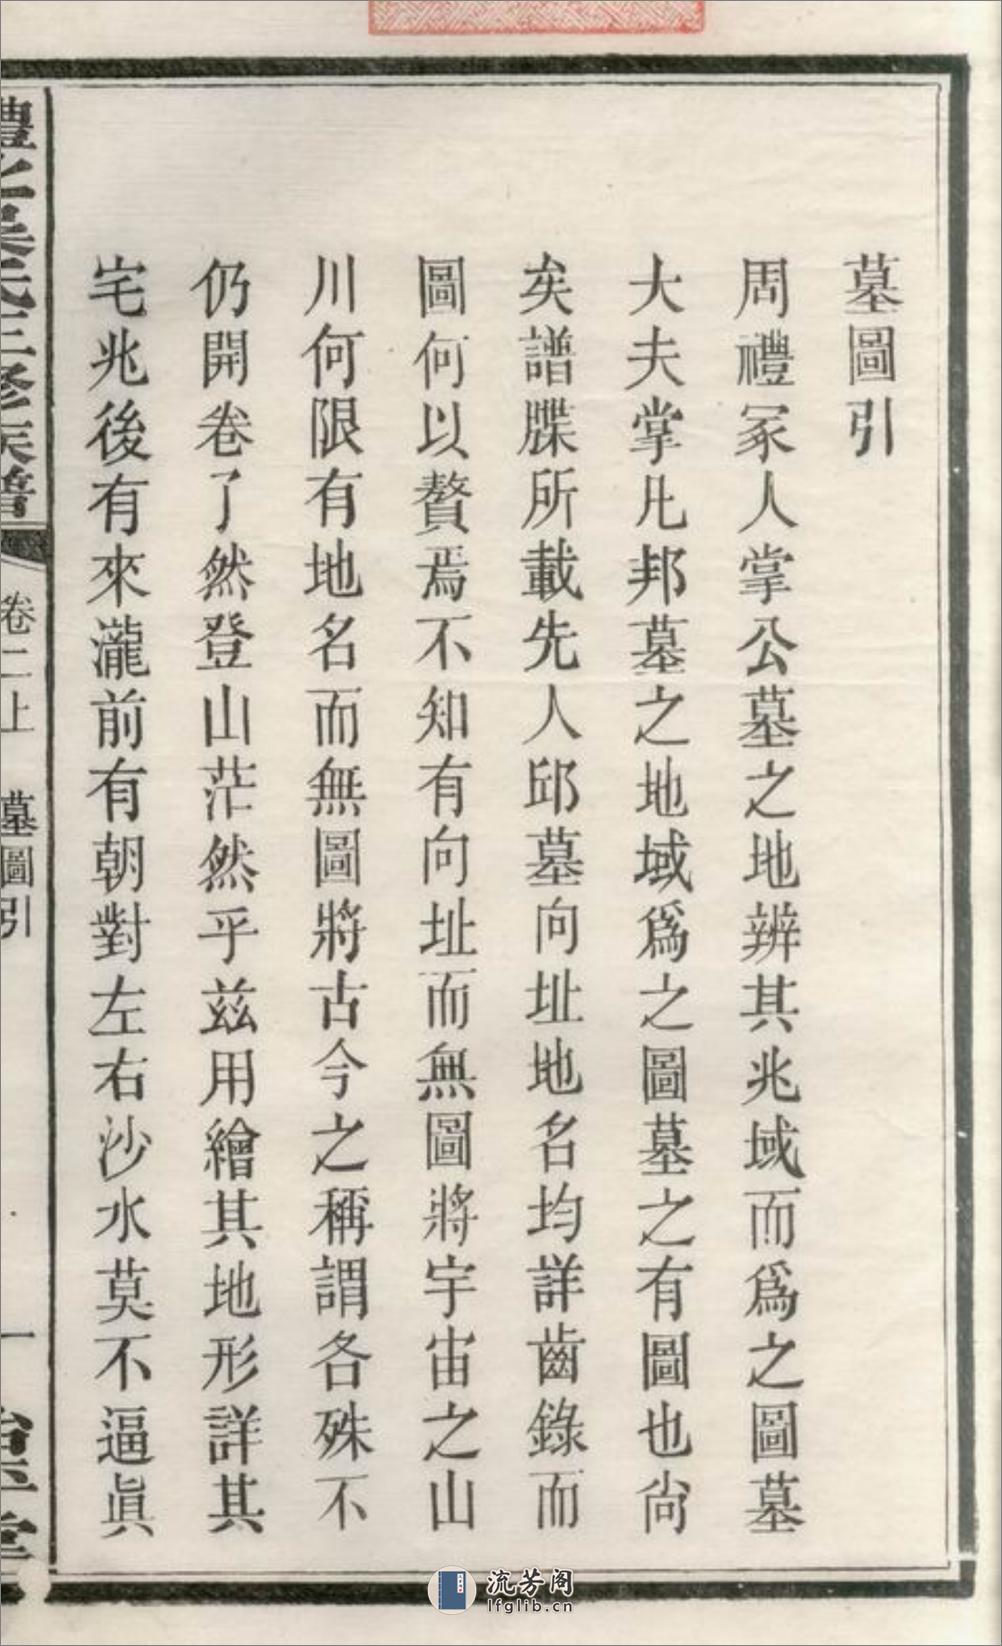 墓圖引
周禮冢人掌公墓之地辨其兆域而爲之圖墓
大夫掌凡邦墓之地域爲之圖墓之有圖也尙
矣譜牒所載先人邱墓向址地名均詳齒錄而
圖何以贅焉不知有向址而無圖將宇宙之山
川何限有地名而無圖將古今之稱謂各殊不
仍開卷了然登山茫然乎兹用繪其地形詳其
宅兆後有來瀧前有朝對左右沙水莫不逼眞
氏三修族譜
卷二上
墓圖引
一
堂
流芳阁
lfglib.cn